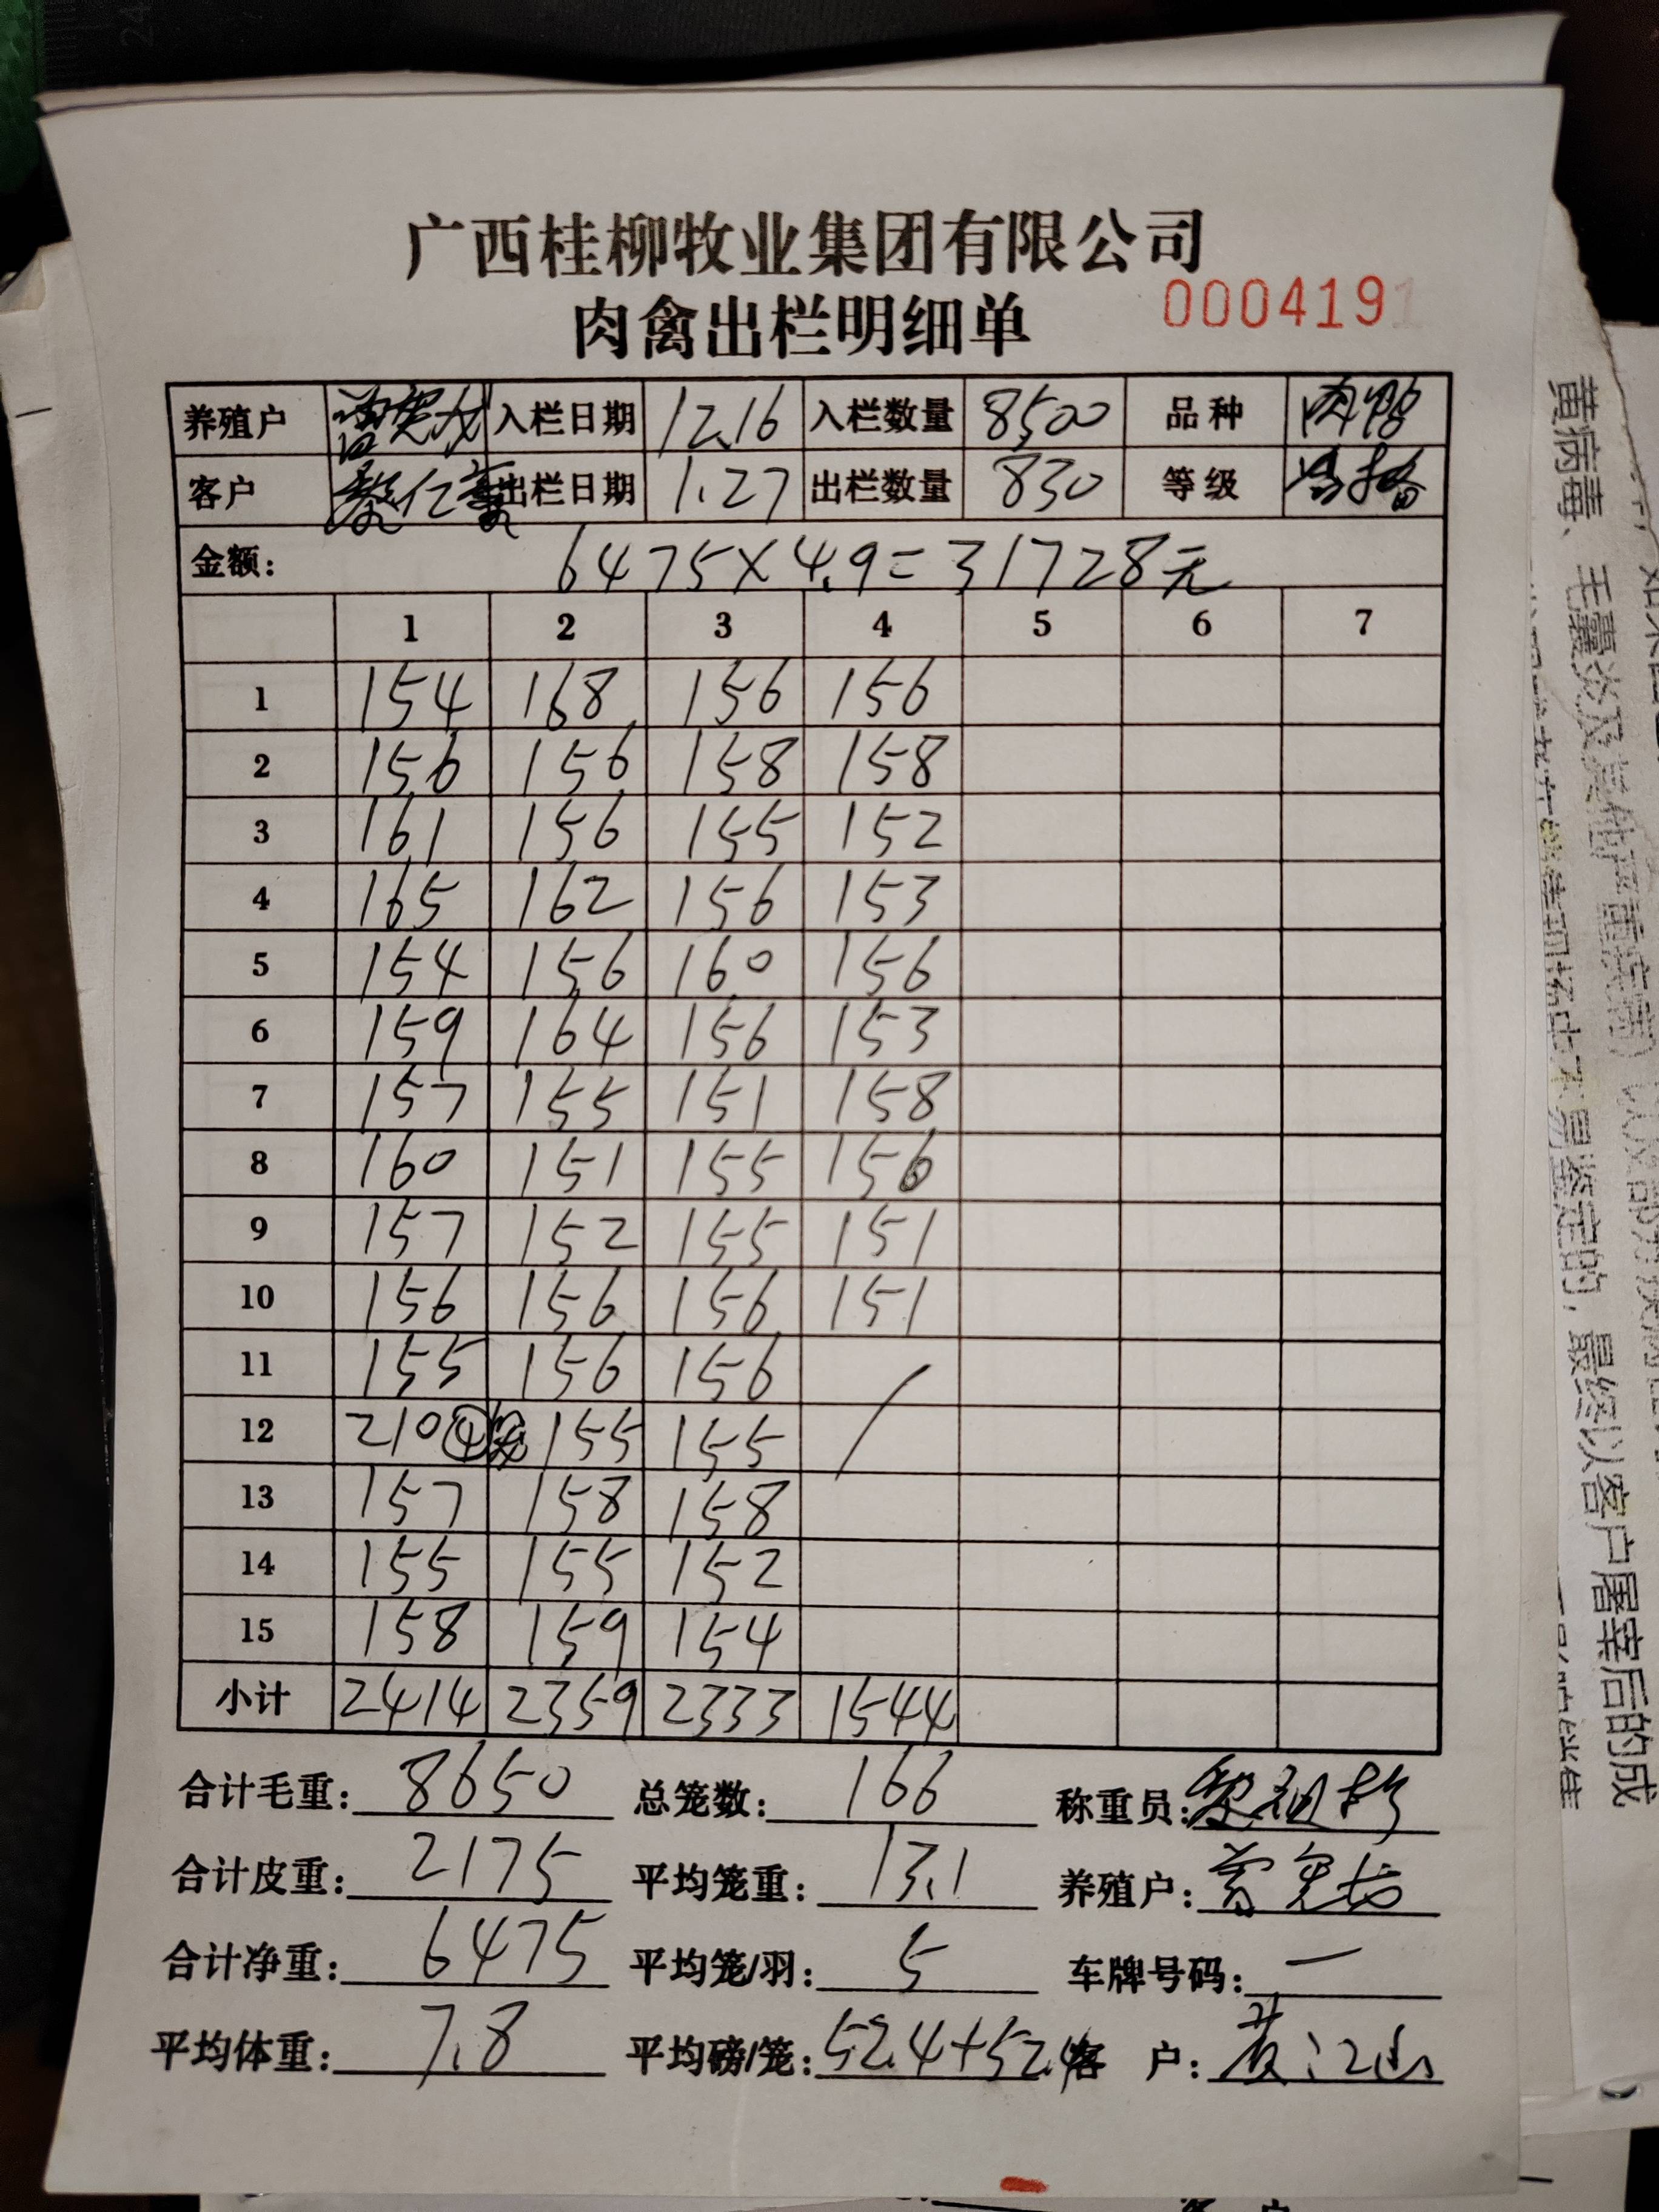 广西桂柳牧业集团有限公司
肉禽出栏明细单 0004191
养殖户 入栏日期 12.16 入栏数量 8500 品种 肉鸭
客户 黎仁 出栏日期 1.27 出栏数量 830 等级
金额: 6475×4.9=31728元
1 2 3 4 5 6 7
1 154 168 156 156
2 156 156 158 158
3 161 156 155 152
4 165 162 156 153
5 154 156 160 156
6 159 164 156 153
7 157 155 151 158
8 160 151 155 156
9 157 152 155 151
10 156 156 156 151
11 155 156 156
12 210 ④笼 155 155
13 157 158 158
14 155 155 152
15 158 159 154
小计 2414 2359 2333 1544
合计毛重: 8650 总笼数: 166 称重员:
合计皮重: 2175 平均笼重: 13.1 养殖户:
合计净重: 6475 平均笼/羽: 5 车牌号码: 一
平均体重: 7.8 平均磅/笼: 52.4+52.4 客 户: 黄江山
黄病毒、毛囊炎及其他严重疾病
最终以客户屠宰后的成